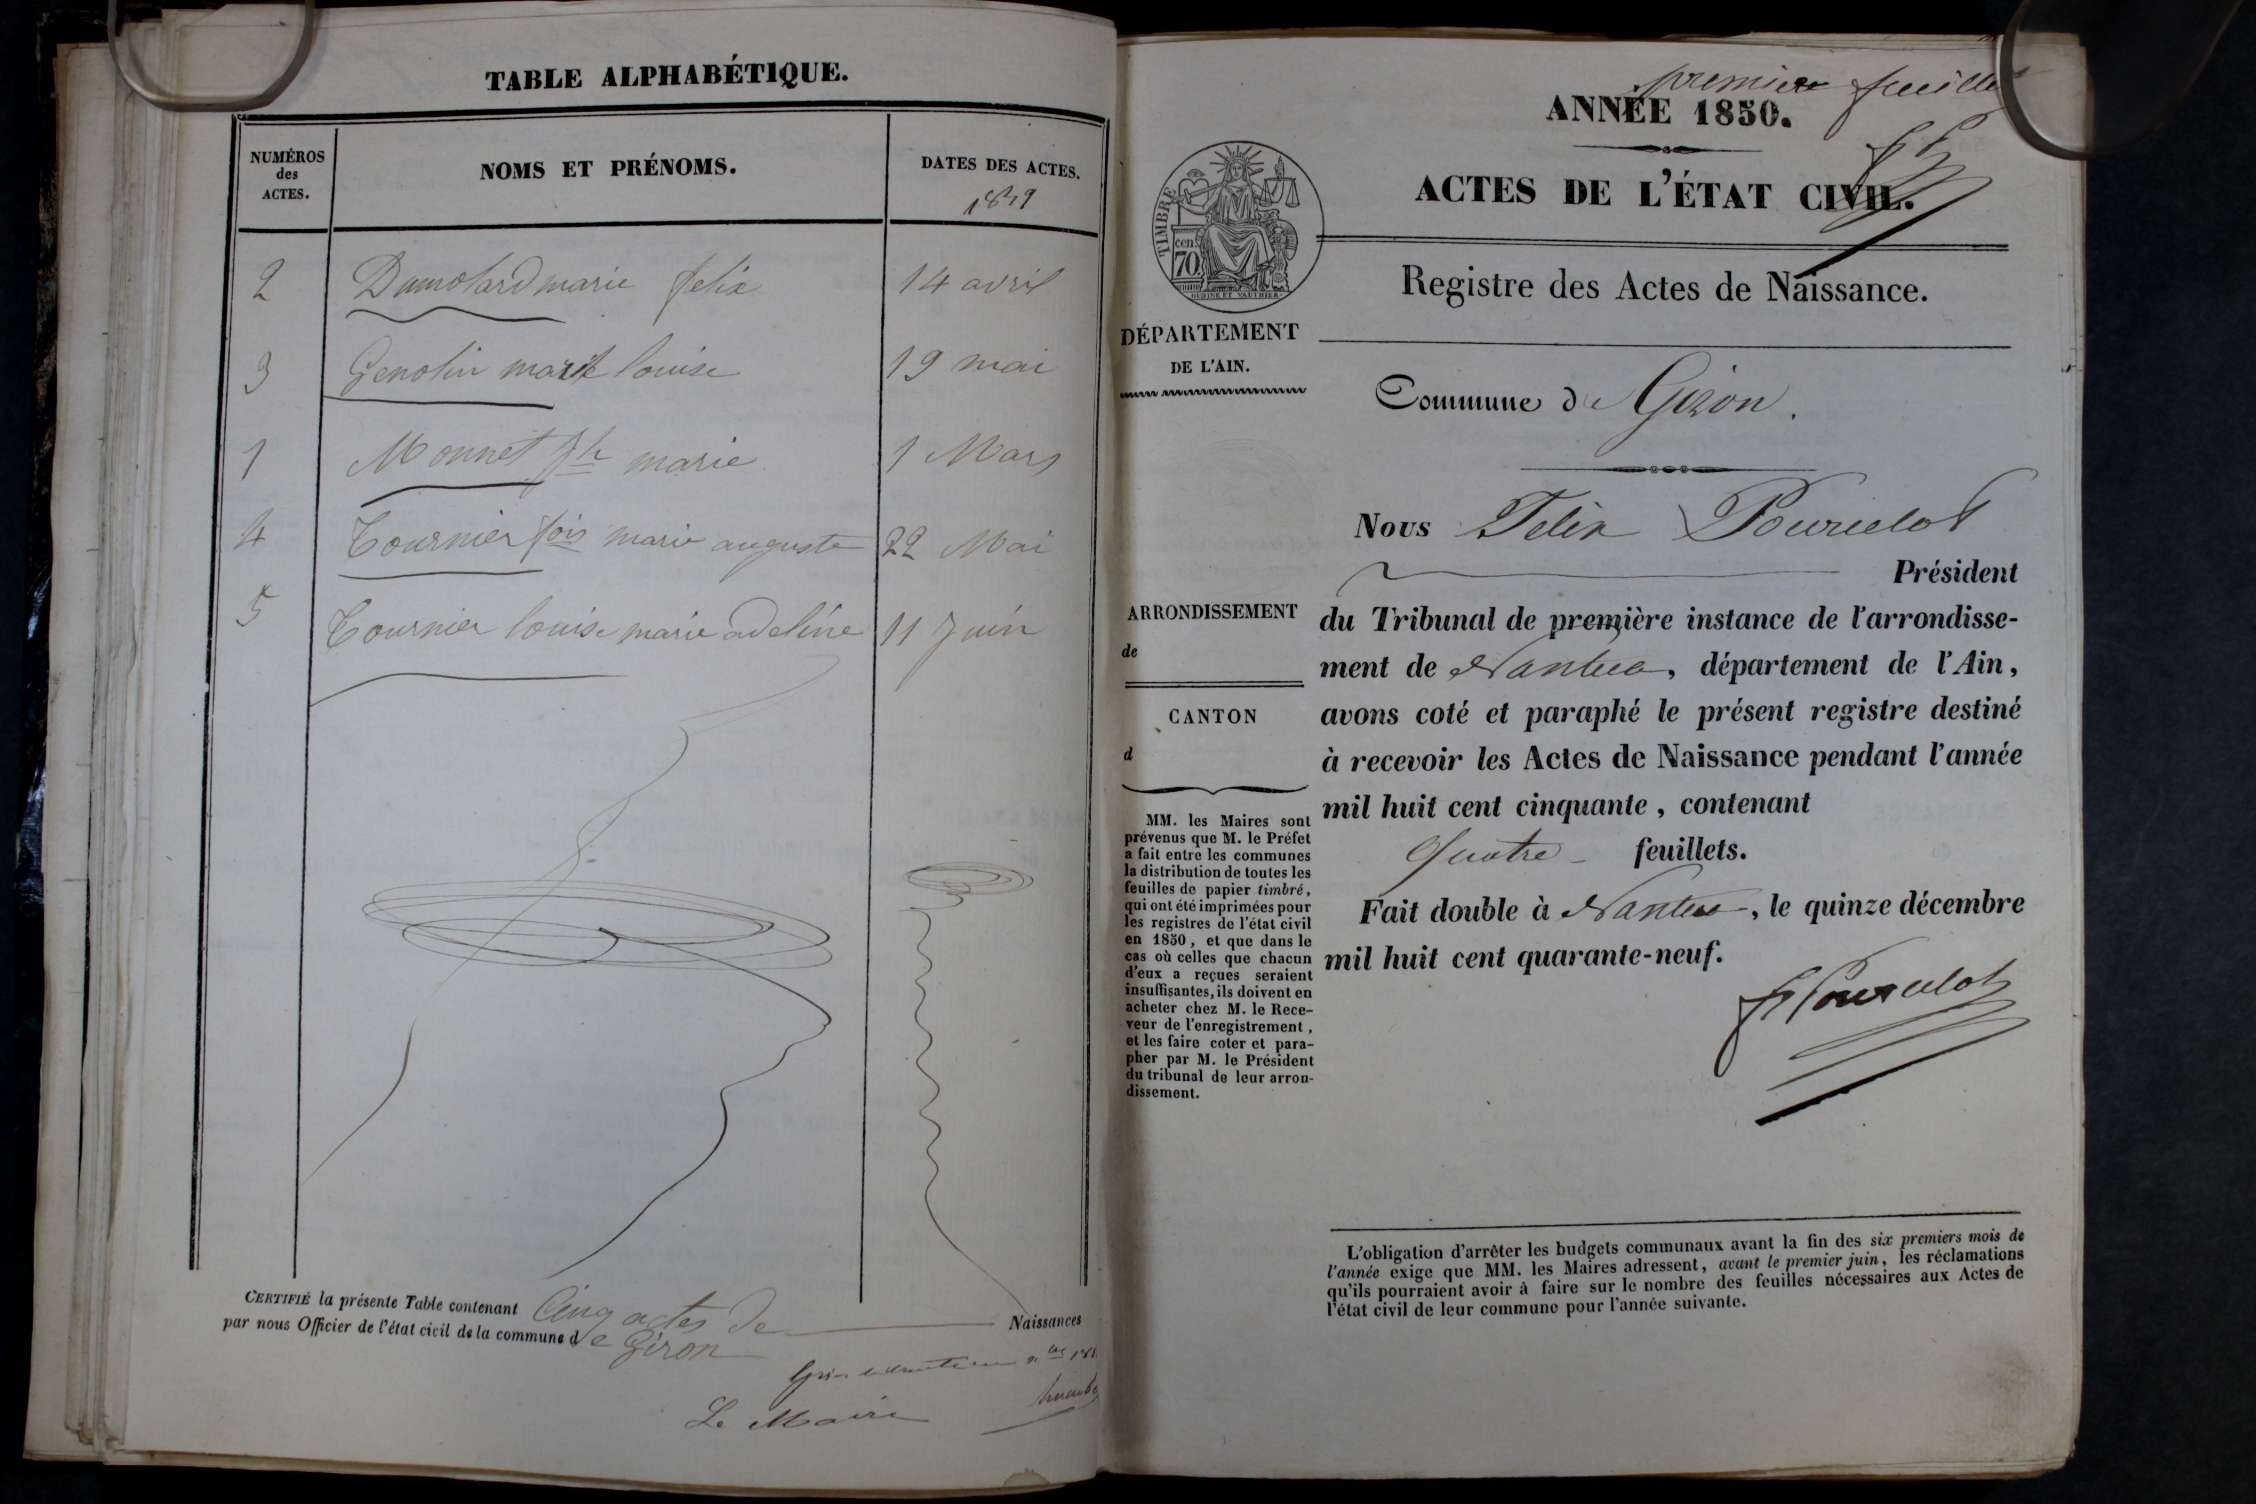 TABLE ALPHABÉTIQUE.
NUMÉROS
des
ACTES.
NOMS ET PRÉNOMS.
DATES DES ACTES.
1849
2 Dumolard marie felix 14 avril
3 Genolin marie louise 19 mai
1 Monnet jh marie 1 Mars
4 Tournier fois marie auguste 22 Mai
5 Tournier louise marie adeline 11 Juin
CERTIFIÉ la présente Table contenant Cinq actes de Naissances
par nous Officier de l'état civil de la commune de Giron
Le Maire
premier feuillet
ANNÉE 1850.
ACTES DE L'ÉTAT CIVIL.
TIMBRE
70 cen
OUDINÉ ET VAUTHIER
Registre des Actes de Naissance.
DÉPARTEMENT
DE L'AIN.
Commune de Giron.
Nous Felix Pourcelot
Président
ARRONDISSEMENT
de
CANTON
d
du Tribunal de première instance de l'arrondisse-
ment de Nantua, département de l'Ain,
avons coté et paraphé le présent registre destiné
à recevoir les Actes de Naissance pendant l'année
mil huit cent cinquante, contenant
Quatre feuillets.
Fait double à Nantua, le quinze décembre
mil huit cent quarante-neuf.
F Pourcelot
MM. les Maires sont
prévenus que M. le Préfet
a fait entre les communes
la distribution de toutes les
feuilles de papier timbré,
qui ont été imprimées pour
les registres de l'état civil
en 1850, et que dans le
cas où celles que chacun
d'eux a reçues seraient
insuffisantes, ils doivent en
acheter chez M. le Rece-
veur de l'enregistrement,
et les faire coter et para-
pher par M. le Président
du tribunal de leur arron-
dissement.
L'obligation d'arrêter les budgets communaux avant la fin des six premiers mois de
l'année exige que MM. les Maires adressent, avant le premier juin, les réclamations
qu'ils pourraient avoir à faire sur le nombre des feuilles nécessaires aux Actes de
l'état civil de leur commune pour l'année suivante.